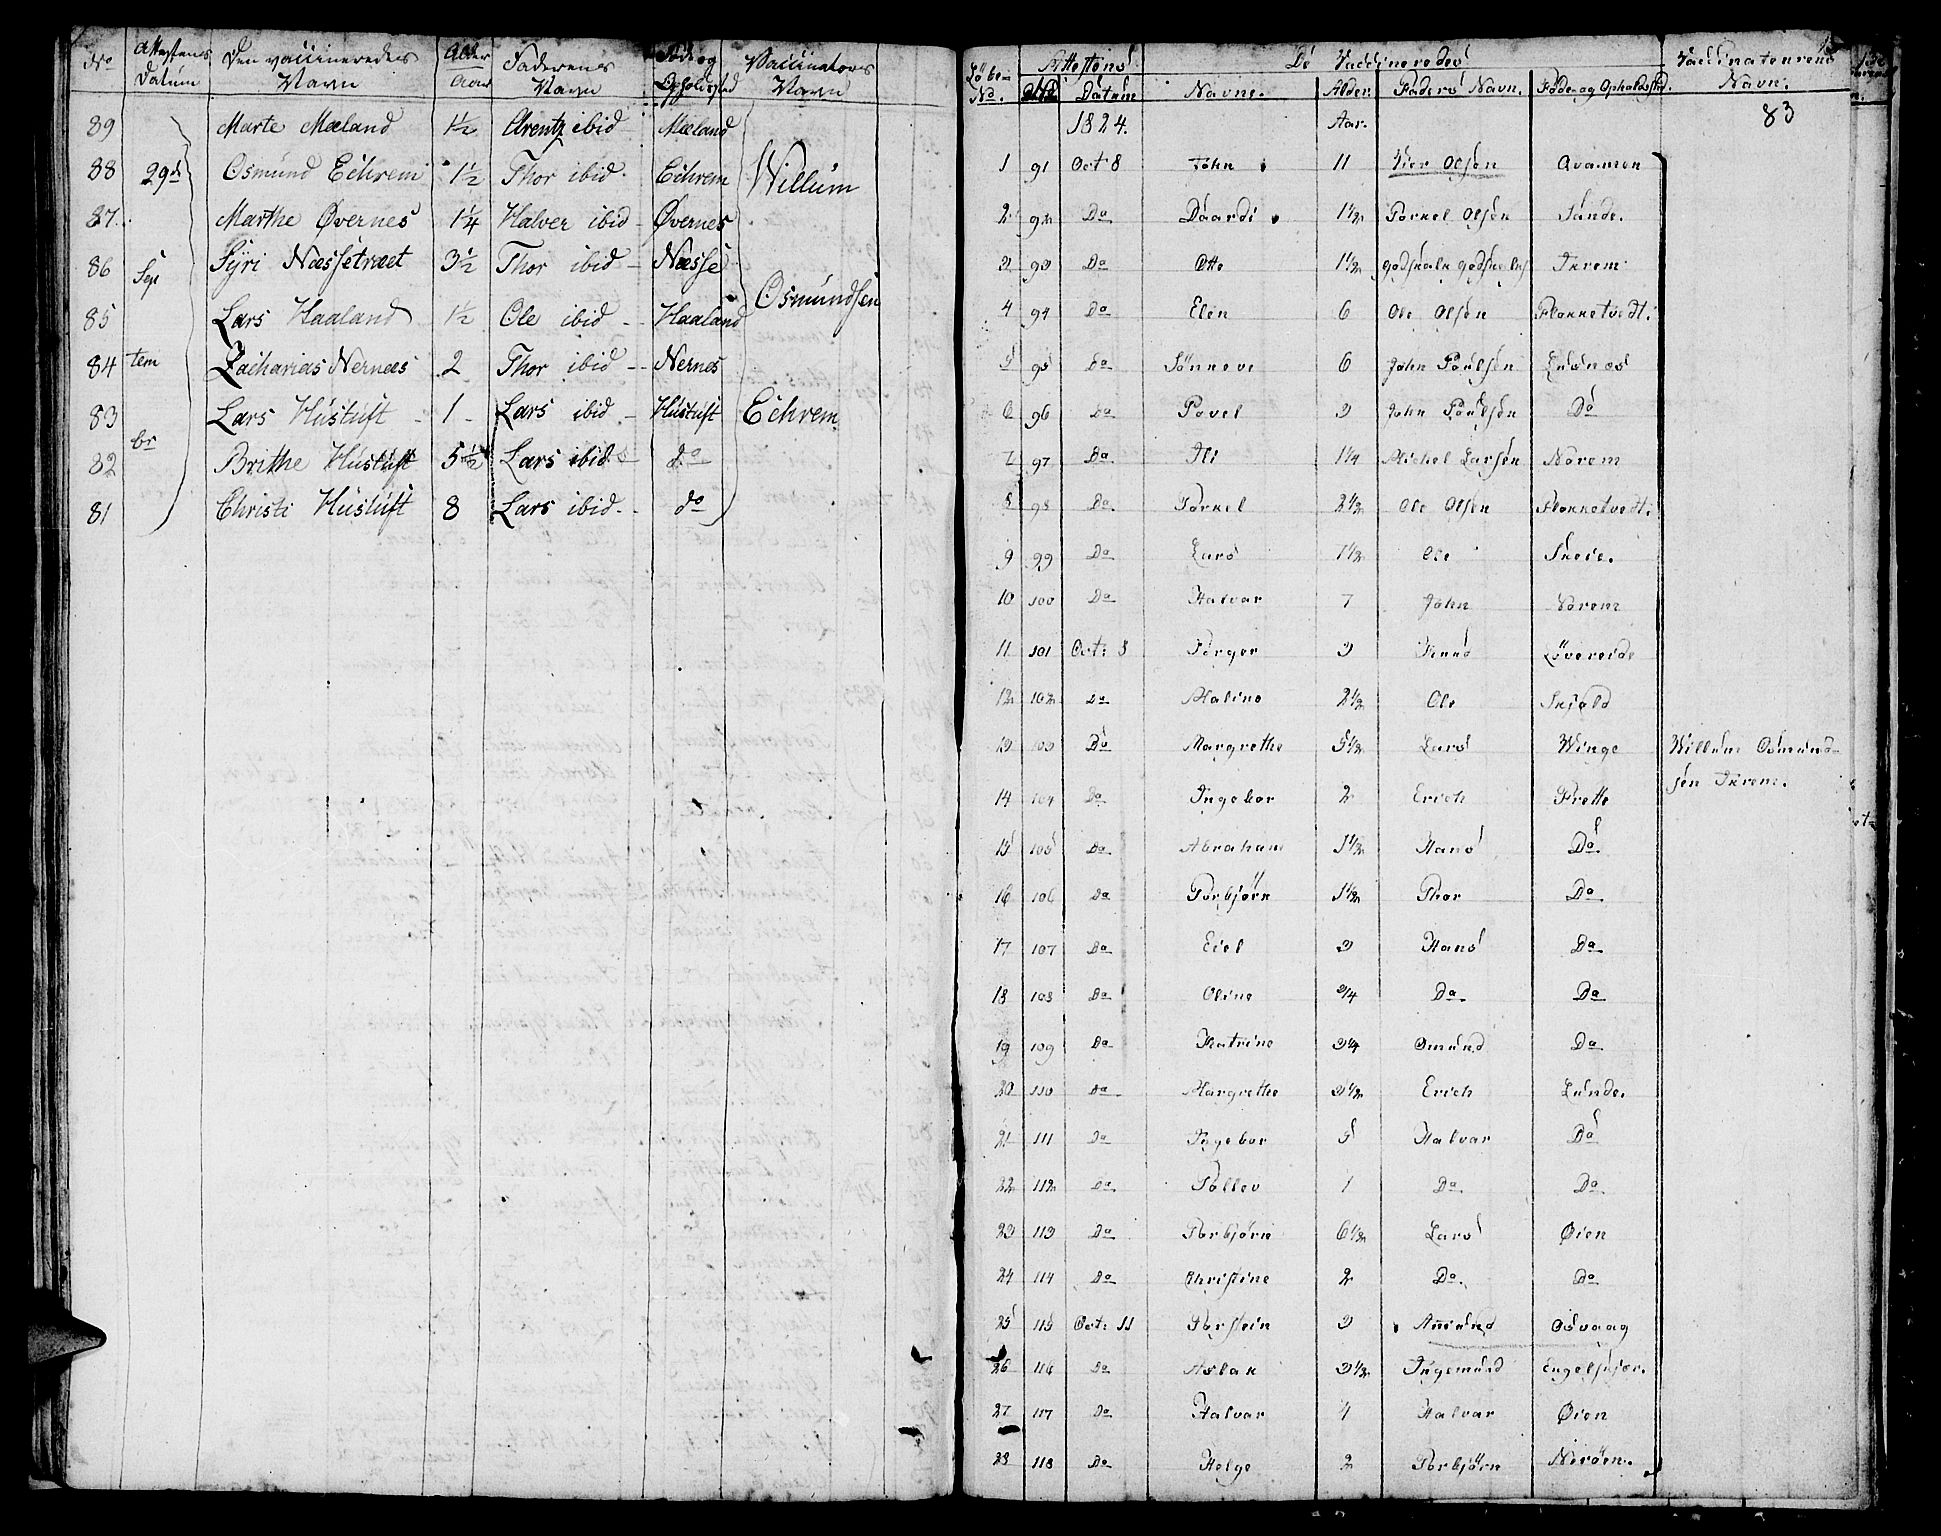 No | Attestens Datum | Den vaccineredes Navn | Alder Aar | Faderens Navn | Føde og Opholdsted | Vaccinatores Navn
89 Marte Mæland 1½ Arentz ibid Mæland
88 29de Osmund Echrem 1½ Thor ibid. Echrem Willum
87. Marthe Øvernes 1¼ Halver ibid - Øvernes
86 Sep Syri Næssetræet 3½ Thor ibid - Næsse
85 Lars Haaland 1½ Ole ibid - Haaland Osmundsen
84 tem Zacharias Nernæs 2 Thor ibid - Nernes
83 Lars Hustuft - 1 - Lars ibid - Hustuft Echrem.
82 br Brithe Hustuft 5½ Lars ibid - do
81 Christi Hustuft 8 Lars ibid. - do
Løbe- No. | Attestens No Datum | De Vaccineredes Navne. Alder. Faders Navn. Føde- og Opholdssted. | Vaccinateurens Navn.
1824. Aar. 83
1 91 Oct 8 John 11 Olsen Qvamen
2 92 Do Daardi 1½ Torkel Olsen Sande.
3 93 Do Otte 1½ Ikrem
4 94 Do Elen 6 Ole Olsen Flokketvedt.
5 95 Do Sönneve 6 John Poulsen Lusnes
6 96 Do Povel 3 John Poulsen Do
7 97 Do Ili 1¼ Michel Larsen Norem
8 98 Do. Torkel 2½ Ole Olsen Flokketvedt.
9 99 Do Lars 1½ Ole Skeie.
10 100 Do Halvar 7 John Norem
11 101 Oct: 8 Torger 3 Knud Løvereide
12 102 Do Maline 2½ Ole Skjold
13 103 Do Margrethe 5½ Lars Winge Willum Osmund-
14 104 Do Ingebor 2 Erich Frette sen Ikrem.
15 105 Do Abraham 1½ Hans Do
16 106 Do Torbjörn 1½ Thor Do
17 107 Do Eiel 3 Hans Do
18 108 Do Oline ¾ Do Do
19 109 Do Katrine 3¼ Omund Do
20 110 Do Margrethe 3½ Erich Lunde.
21 111 Do Ingebor 5 Halvar Do
22 112 Do Tollev 1 Do Do
23 113 Do Torbjörn 6½ Lars Øien
24 114 Do Christine 2 Do. Do
25 115 Oct: 11 Torstein 3 Amund Osvaag
26 116 Do Aslak 3½ Ingemund Engelskjær.
27 117 Do Halvar 4 Halvar Øien
28 118 Do Helge 2 Torbjörn Nerøen.